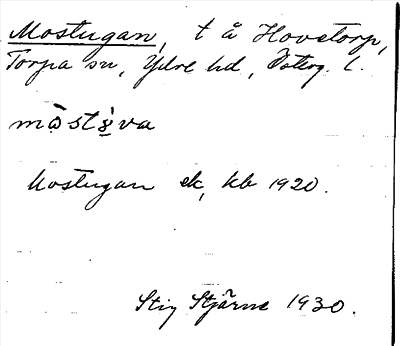 Mostugan, t å Hovetorp,
Torpa sn, Ydre hd, Österg. l.
mòstù̀va
Mostugan ek, kb 1920.
Stig Stjärne 1930.